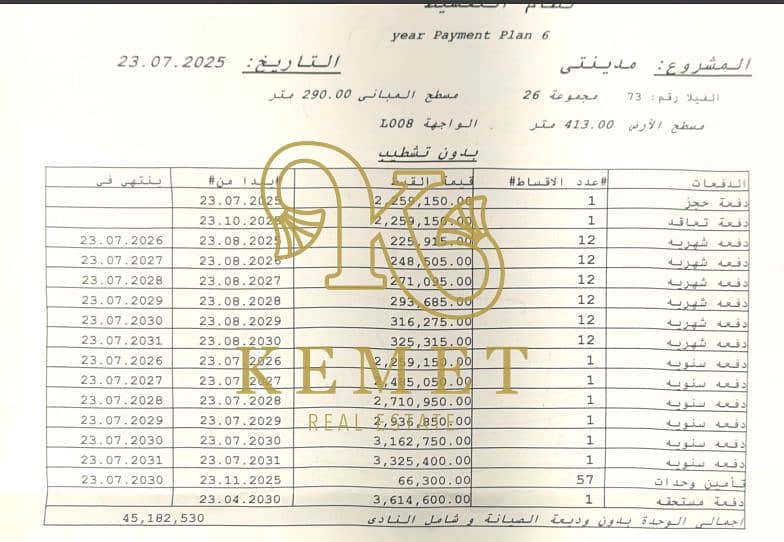 نظام التقسيط
year Payment Plan 6
المشروع: مدينتى التاريخ: 23.07.2025
الفيلا رقم: 73 مجموعة 26 مسطح المبانى 290.00 متر
مسطح الأرض 413.00 متر . الواجهة L008
بدون تشطيب
الدفعات #عدد الاقساط# قيمة القسط #يبدا من# ينتهى فى
دفعة حجز 1 2,259,150.00 23.07.2025
دفعة تعاقد 1 2,259,150.00 23.10.2025
دفعه شهريه 12 225,915.00 23.08.2025 23.07.2026
دفعه شهريه 12 248,505.00 23.08.2026 23.07.2027
دفعه شهريه 12 271,095.00 23.08.2027 23.07.2028
دفعه شهريه 12 293,685.00 23.08.2028 23.07.2029
دفعه شهريه 12 316,275.00 23.08.2029 23.07.2030
دفعه شهريه 12 325,315.00 23.08.2030 23.07.2031
دفعه سنويه 1 2,259,150.00 23.07.2026 23.07.2026
دفعه سنويه 1 2,485,050.00 23.07.2027 23.07.2027
دفعه سنويه 1 2,710,950.00 23.07.2028 23.07.2028
دفعه سنويه 1 2,936,850.00 23.07.2029 23.07.2029
دفعه سنويه 1 3,162,750.00 23.07.2030 23.07.2030
دفعه سنويه 1 3,325,400.00 23.07.2031 23.07.2031
تأمين وحدات 57 66,300.00 23.11.2025 23.07.2030
دفعة مستحقه 1 3,614,600.00 23.04.2030
اجمالى الوحدة بدون وديعة الصيانة و شامل النادى 45,182,530
KEMET
REAL ESTATE